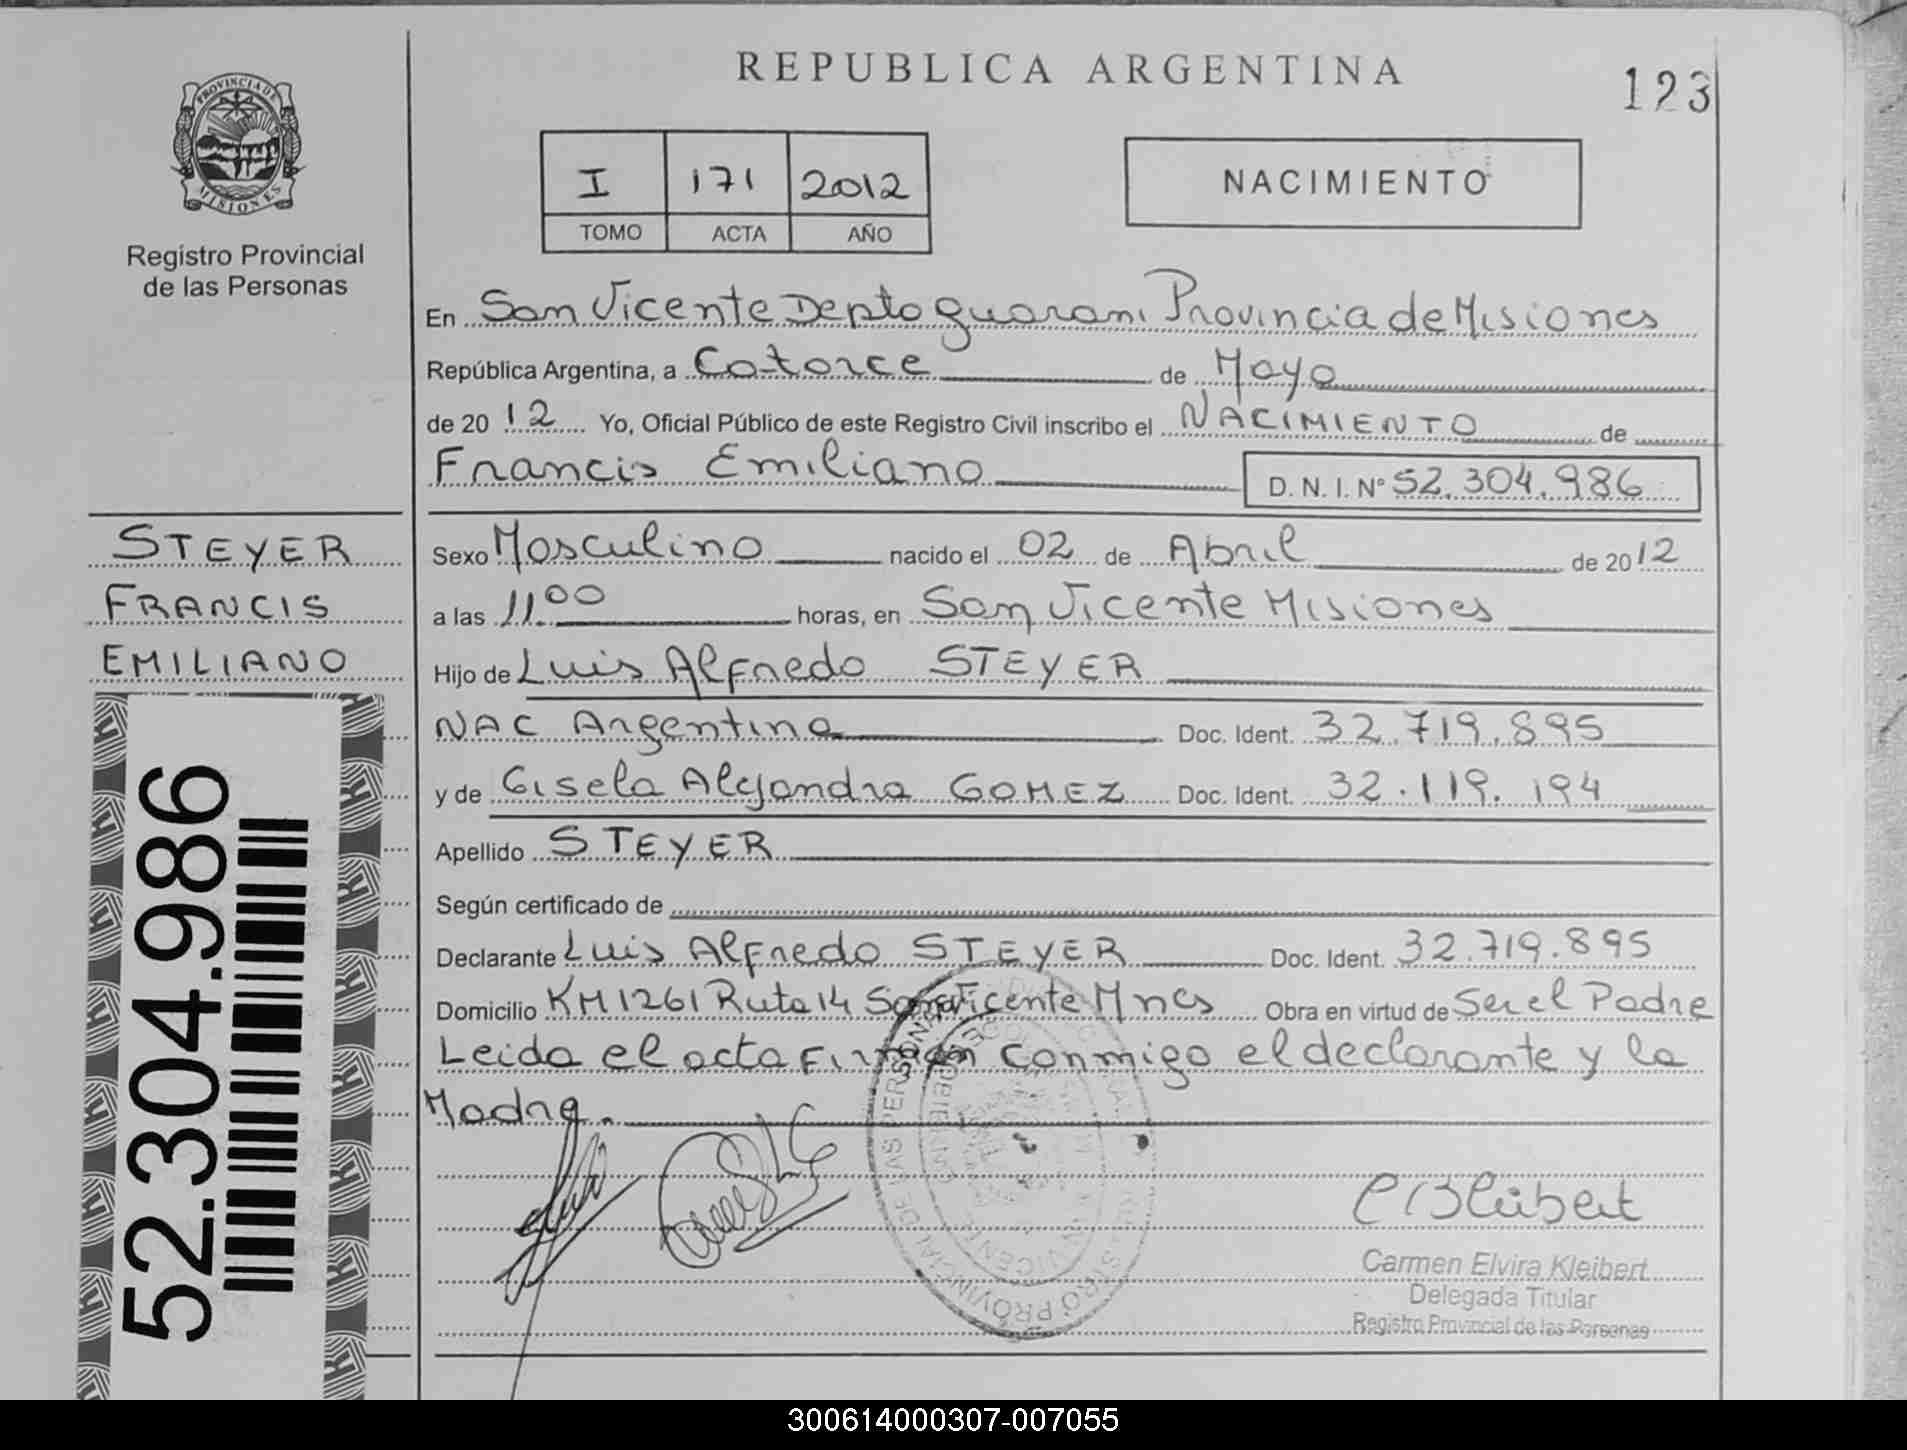 REPUBLICA ARGENTINA
123
PROVINCIA DE
MISIONES
Registro Provincial
de las Personas
I 171 2012
TOMO ACTA AÑO
NACIMIENTO
En San Vicente Depto Guarani Provincia de Misiones
República Argentina, a Catorce de Mayo
de 2012 Yo, Oficial Público de este Registro Civil inscribo el NACIMIENTO de
Francis Emiliano D. N. I. Nº 52.304.986
STEYER
FRANCIS
EMILIANO
Sexo Masculino nacido el 02 de Abril de 2012
a las 11.00 horas, en San Vicente Misiones
Hijo de Luis Alfredo STEYER
NAC Argentina Doc. Ident. 32.719.895
y de Gisela Alejandra GOMEZ Doc. Ident. 32.119.194
Apellido STEYER
Según certificado de
Declarante Luis Alfredo STEYER Doc. Ident. 32.719.895
Domicilio KM 1261 Ruta 14 San Vicente Mnes Obra en virtud de Ser el Padre
Leida el acta Firman conmigo el declarante y la
Madre.
52.304.986
Carmen Elvira Kleibert
Delegada Titular
Registro Provincial de las Personas
300614000307-007055